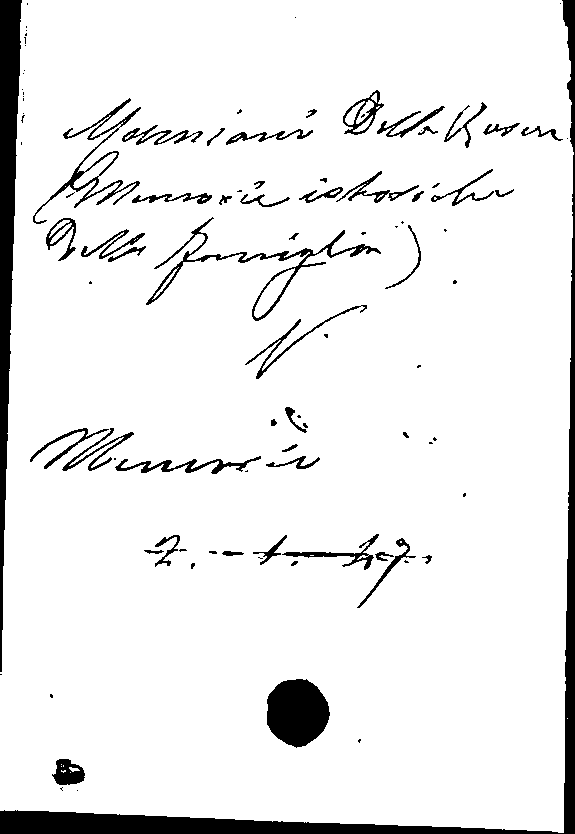 Della Rosa
(Memorie istoriche
Della famiglia)
V.
Memorie
2. - 1. 47.